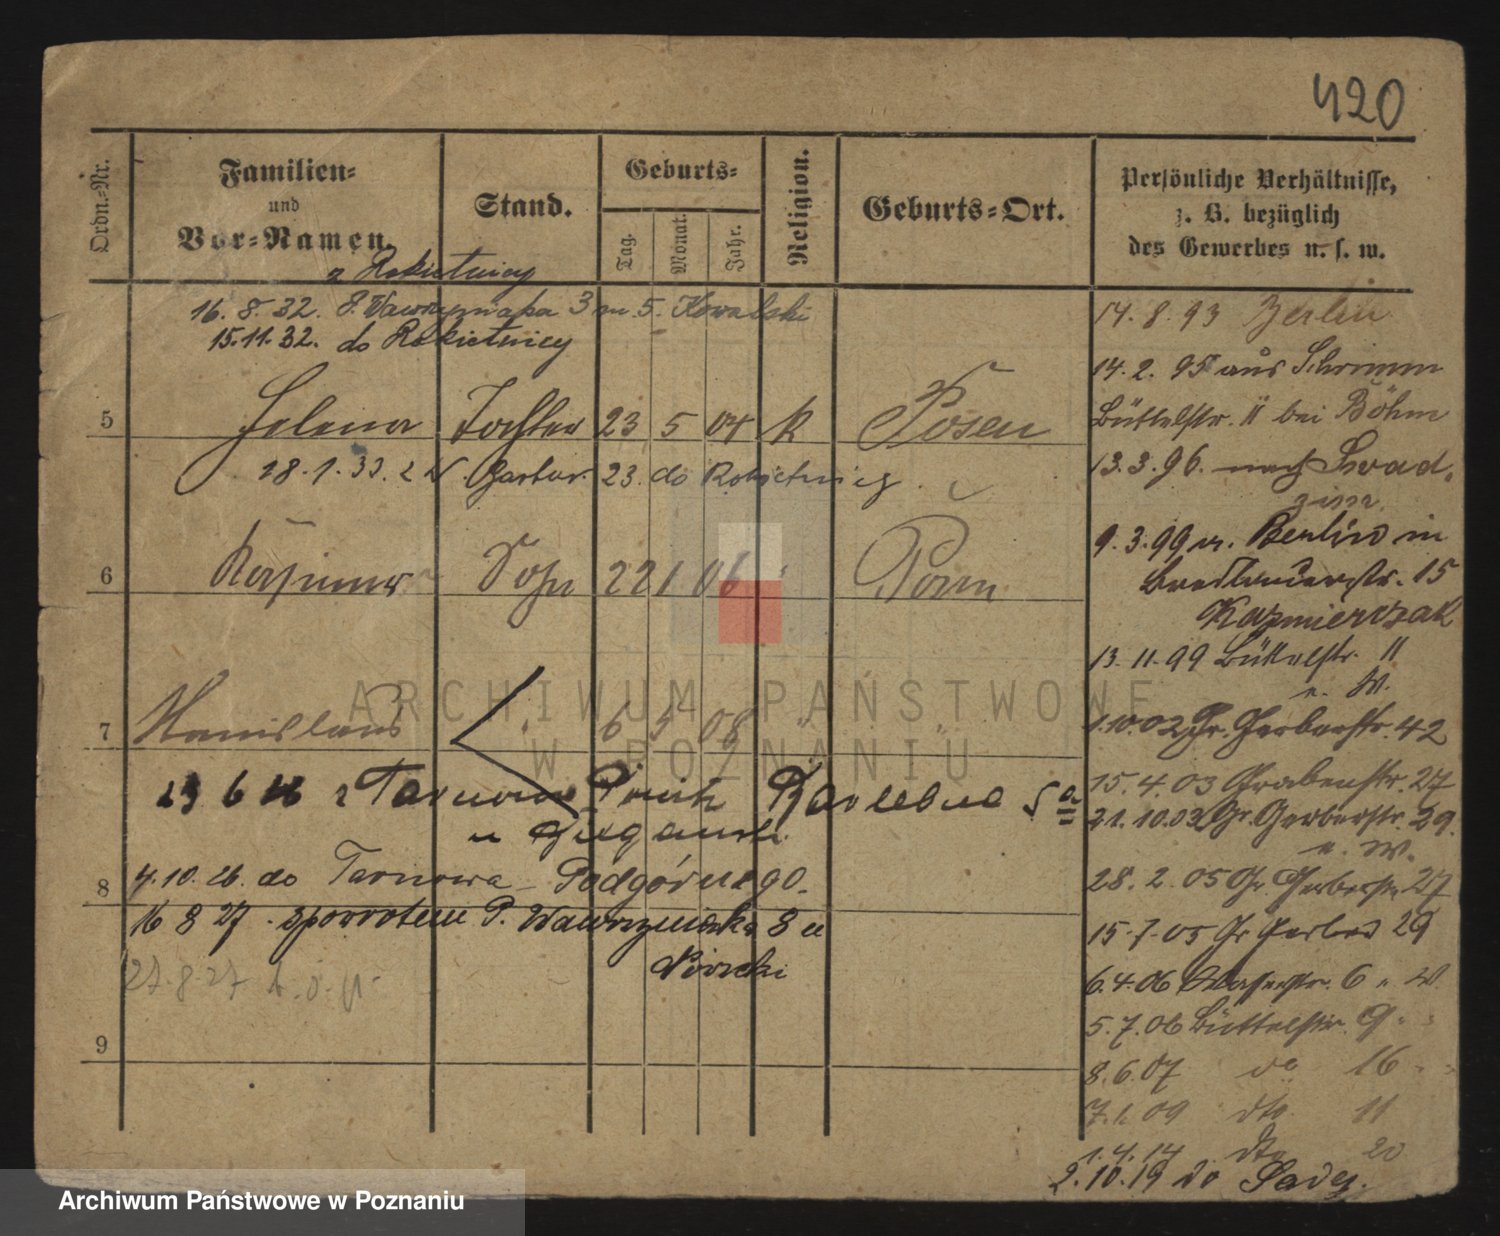 420
Ordn.-Nr.
Familien-
und
Vor-Namen.
Stand.
Geburts-
Tag.
Monat.
Jahr.
Religion.
Geburts-Ort.
Persönliche Verhältnisse,
z. B. bezüglich
des Gewerbes u. s. w.
z Rokietnicy
16. 8. 32. P. Wawrzyniaka 3 m. 5. Kowalski
15.11.32. do Rokietnicy
5 Helena Tochter 23 5 04 k Posen
18. 1. 33. z W. Garbar. 23. do Rokietnicy
6 Kasimir Sohn 22 1 06 " Posen
7 Stanislaus " 6 5 08 " "
23 6 z Tarnowa Karlebue
u
8 4. 10. 26. do Tarnowa-Podgórnego.
16 8 27. spowrotem P. Wawrzyniaka 8 u
27. 8. 27
9
14. 8. 93 Berlin
14. 2. 95 aus Schrimm
Büttelstr. 11 bei Böhm
13. 3. 96. nach Swad-
zim.
9. 3. 99 v. Berlin in
15
Kazmierczak
13. 11. 99 Büttelstr. 11
u. W.
1.10.02 Gr. Gerberstr. 42
15. 4. 03 Grabenstr. 27
21. 10. 03 Gr. Gerberstr. 29.
u. W.
28. 2. 05 Gr. Gerberstr 27
15. 7. 05 Gr Gerber 29
6. 4. 06 Wasserstr. 6 u. W.
5. 7. 06 Büttelstr. 9 "
8. 6. 07 do 16 "
7. 1. 09 dto. 11
1. 4. 14 dto 20
2. 10. 19 20
ARCHIWUM PAŃSTWOWE
W POZNANIU
Archiwum Państwowe w Poznaniu